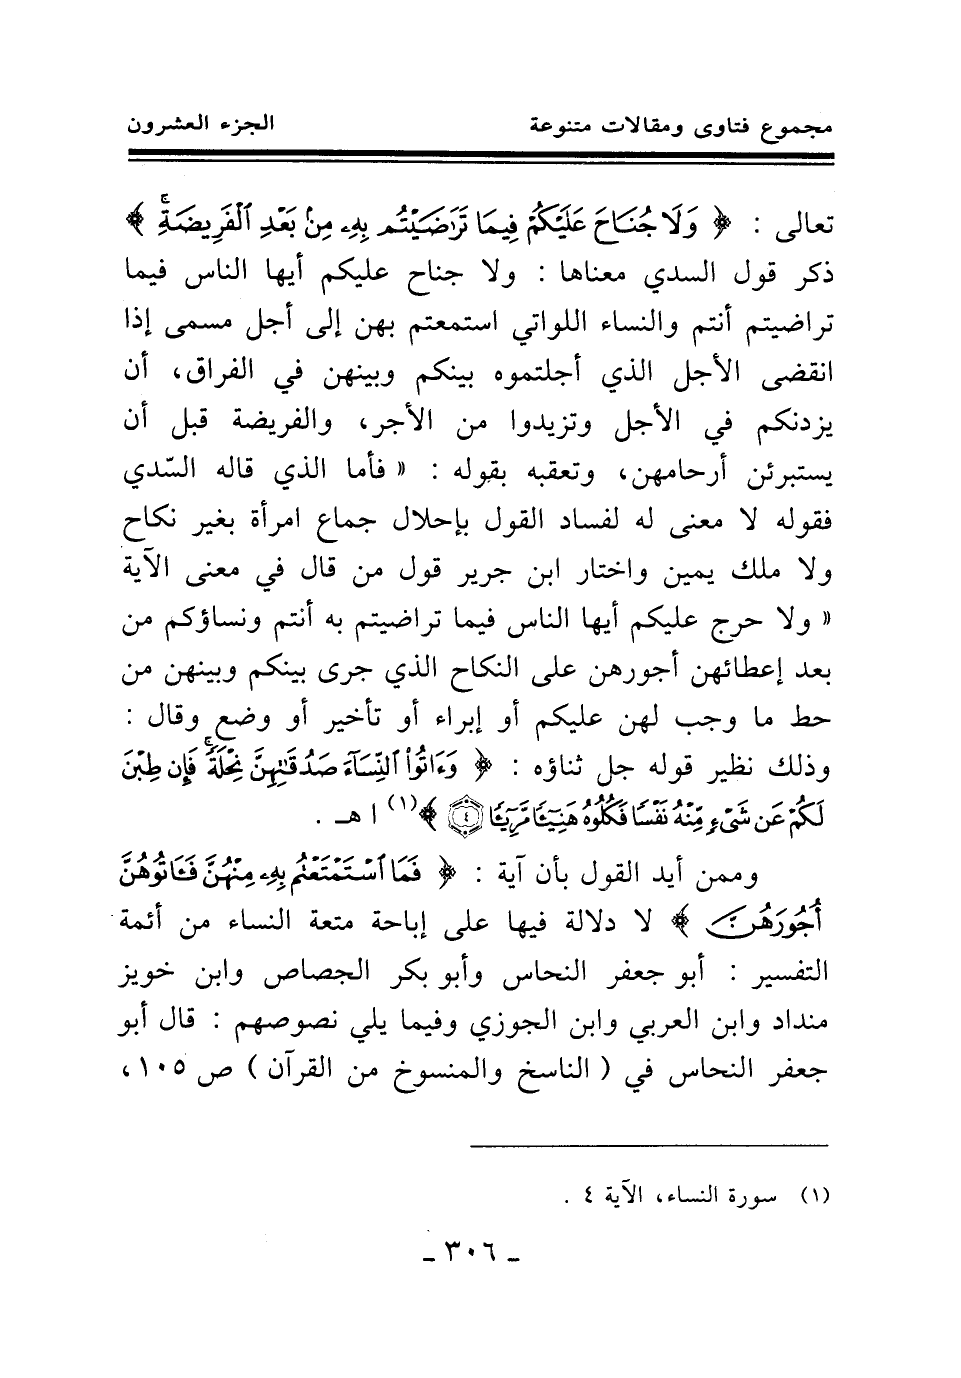 مجموع فتاوى ومقالات متنوعة الجزء العشرون
تعالى : ﴿ وَلَا جُنَاحَ عَلَيْكُمْ فِيمَا تَرَاضَيْتُم بِهِۦ مِنۢ بَعْدِ ٱلْفَرِيضَةِۚ ﴾
ذكر قول السدي معناها : ولا جناح عليكم أيها الناس فيما
تراضيتم أنتم والنساء اللواتي استمتعتم بهن إلى أجل مسمى إذا
انقضى الأجل الذي أجلتموه بينكم وبينهن في الفراق، أن
يزدنكم في الأجل وتزيدوا من الأجر، والفريضة قبل أن
يستبرئن أرحامهن، وتعقبه بقوله : « فأما الذي قاله السّدي
فقوله لا معنى له لفساد القول بإحلال جماع امرأة بغير نكاح
ولا ملك يمين واختار ابن جرير قول من قال في معنى الآية
« ولا حرج عليكم أيها الناس فيما تراضيتم به أنتم ونساؤكم من
بعد إعطائهن أجورهن على النكاح الذي جرى بينكم وبينهن من
حط ما وجب لهن عليكم أو إبراء أو تأخير أو وضع وقال :
وذلك نظير قوله جل ثناؤه : ﴿ وَءَاتُوا۟ ٱلنِّسَآءَ صَدُقَٰتِهِنَّ نِحْلَةًۚ فَإِن طِبْنَ
لَكُمْ عَن شَىْءٍ مِّنْهُ نَفْسًا فَكُلُوهُ هَنِيٓـًٔا مَّرِيٓـًٔا ٤ ﴾(١) ا هـ .
وممن أيد القول بأن آية : ﴿ فَمَا ٱسْتَمْتَعْتُم بِهِۦ مِنْهُنَّ فَـَٔاتُوهُنَّ
أُجُورَهُنَّ ﴾ لا دلالة فيها على إباحة متعة النساء من أئمة
التفسير : أبو جعفر النحاس وأبو بكر الجصاص وابن خويز
منداد وابن العربي وابن الجوزي وفيما يلي نصوصهم : قال أبو
جعفر النحاس في ( الناسخ والمنسوخ من القرآن ) ص ١٠٥،
(١) سورة النساء، الآية ٤ .
ـ ٣٠٦ ـ